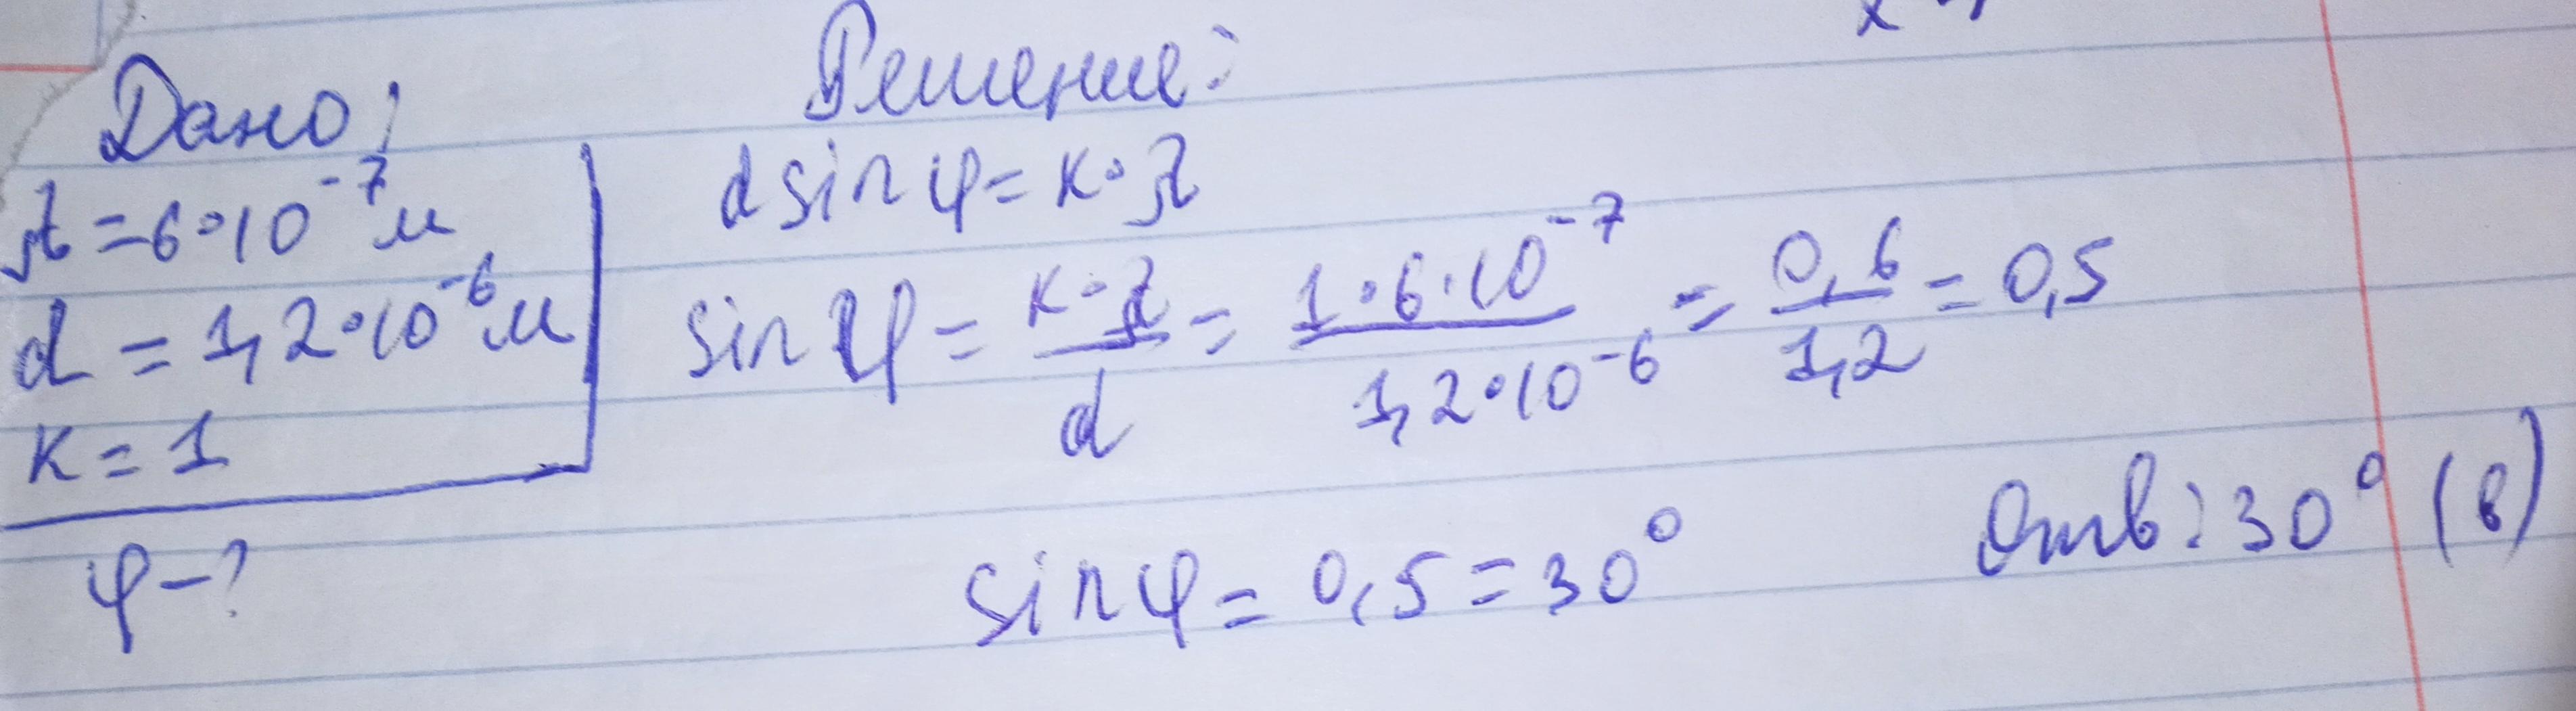 Дано:
λ = 6·10⁻⁷ м
d = 1,2·10⁻⁶ м
к = 1
φ – ?
Решение:
d sin φ = к·λ
sin φ = к·λ / d = 1·6·10⁻⁷ / 1,2·10⁻⁶ = 0,6 / 1,2 = 0,5
sin φ = 0,5 = 30°
Отв: 30° (в)